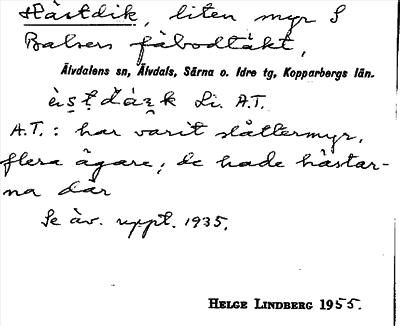 Hästdik, liten myr S
Balsers fäbodtäkt,
Älvdalens sn, Älvdals, Särna o. Idre tg, Kopparbergs län.
Li. A.T.
A.T.: har varit slåttermyr,
flera ägare; de hade hästar-
na där
Se äv. uppt. 1935.
HELGE LINDBERG 1955.